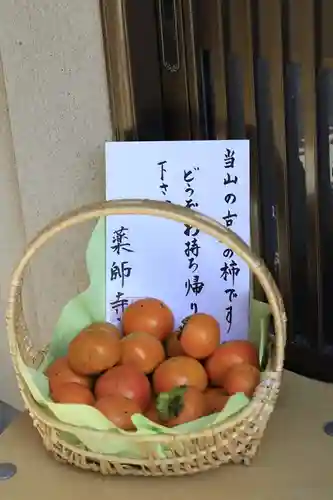 当山の京の柿です
どうぞお持ち帰り
下さ
薬師寺